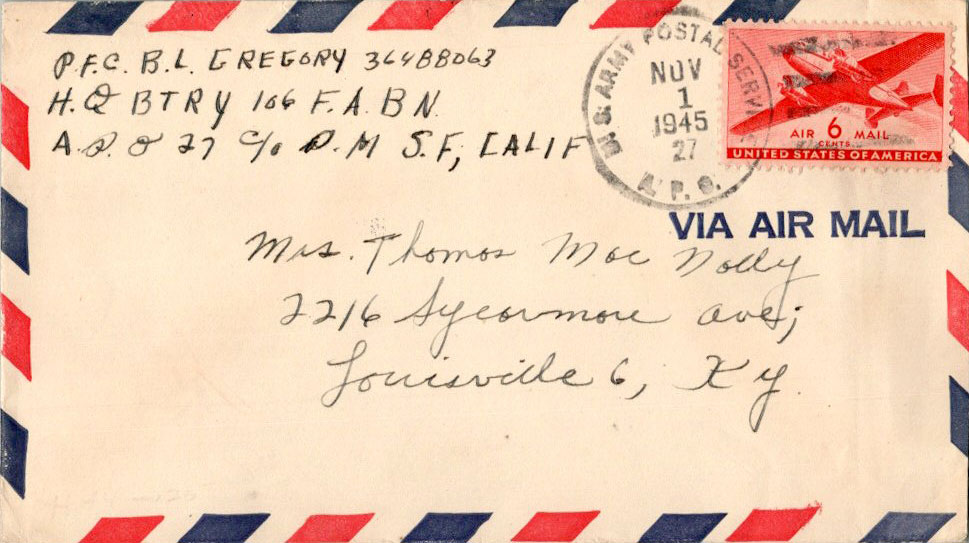 P.F.C. B.L. GREGORY 36488063
H.Q BTRY 106 F.A. BN.
A.P.O 27 C/o P.M S.F, CALIF
U.S. ARMY POSTAL SERVICE
NOV
1
1945
27
A.P.O.
AIR 6 MAIL
CENTS
UNITED STATES OF AMERICA
VIA AIR MAIL
Mrs. Thomas Mac Nolly
2216 Sycormore ave;
Louisville 6, Ky.